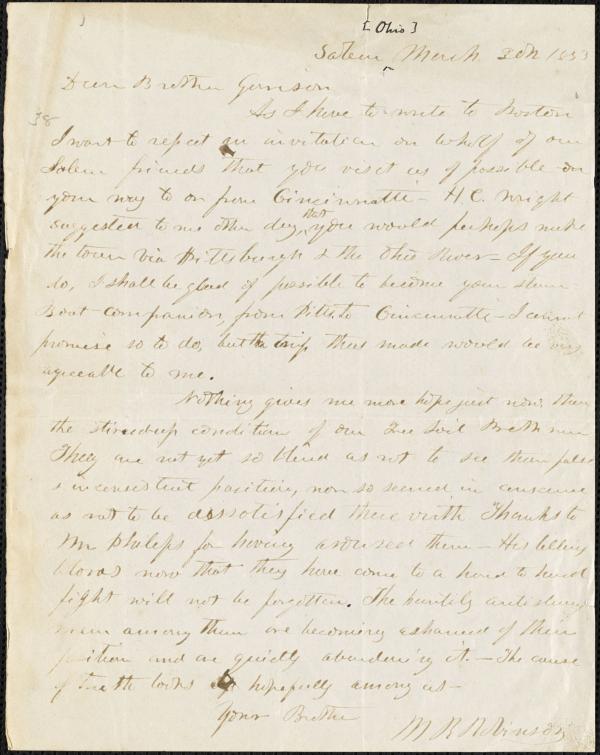 [Ohio]
Salem March 30th 1853
Dear Brother Garrison
As I have to write to Boston
38
I want to repeat an invitation on behalf of our
Salem friends that you visit us if possible on
your way to or from Cincinnatti - H.C. Wright
suggested to me other day, that you would perhaps make
the town via Pittsburgh & the Ohio River - If you
do, I shall be glad if possible to become your steam
Boat companion, from Pitts to Cincinnatti - I cannot
promise so to do, but the trip thus made would be very
agreeable to me.
Nothing gives me more hope just now, than
the stirred up condition of our Free Soil Brethren
They are not yet so blind as not to see their false
& inconsistent position, nor so seared in conscience
as not to be dissatisfied therewith Thanks to
Mr Philips for having aroused them - His telling
blows now that they have come to a hand to hand
fight will not be forgotten. The heartily antislavery
men among them are becoming ashamed of their
position and are quietly abandoning it. - The cause
of Truth looks hopefully among us -
Your Brother
M R Robinson